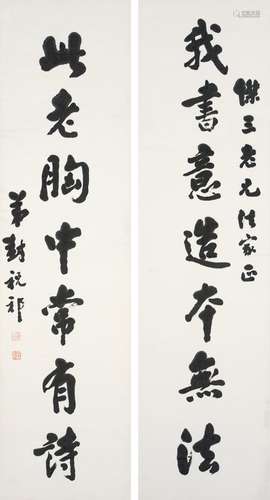 傑三老兄法家正
我書意造本無法
此老胸中常有詩
弟封祝祁